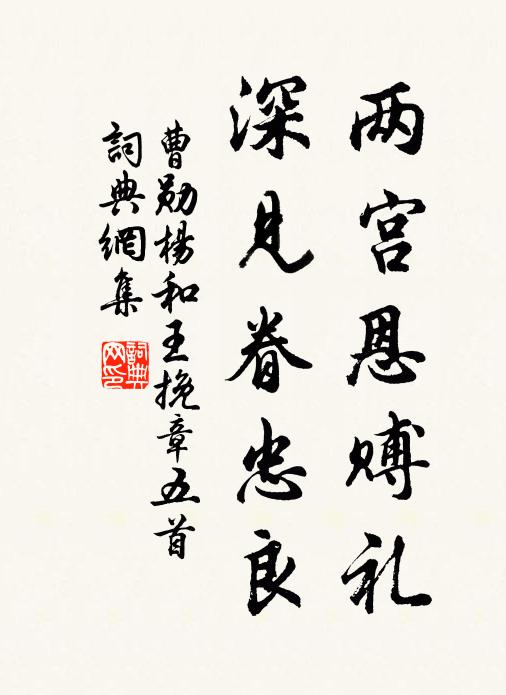 两宫恩赙礼
深见眷忠良
曹勋杨和王挽章五首
詞典網集
詞典网印